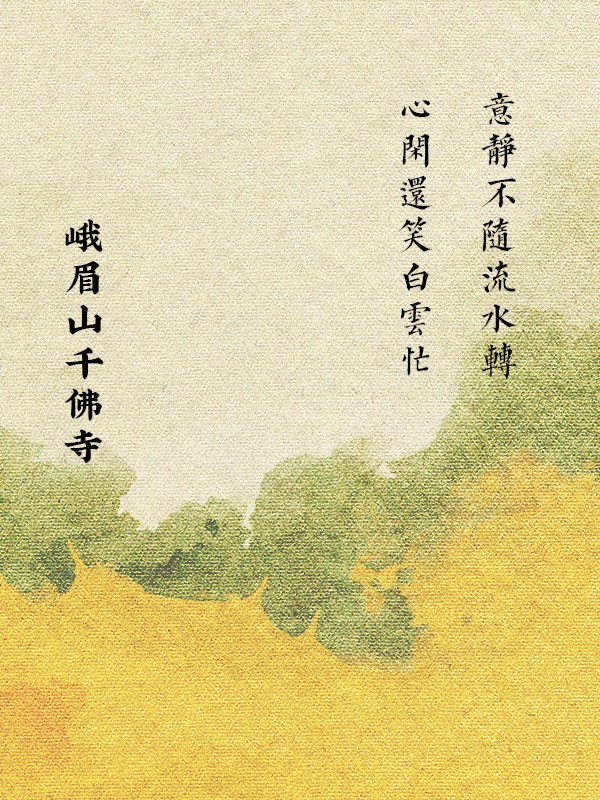 意靜不隨流水轉
心閑還笑白雲忙
峨眉山千佛寺